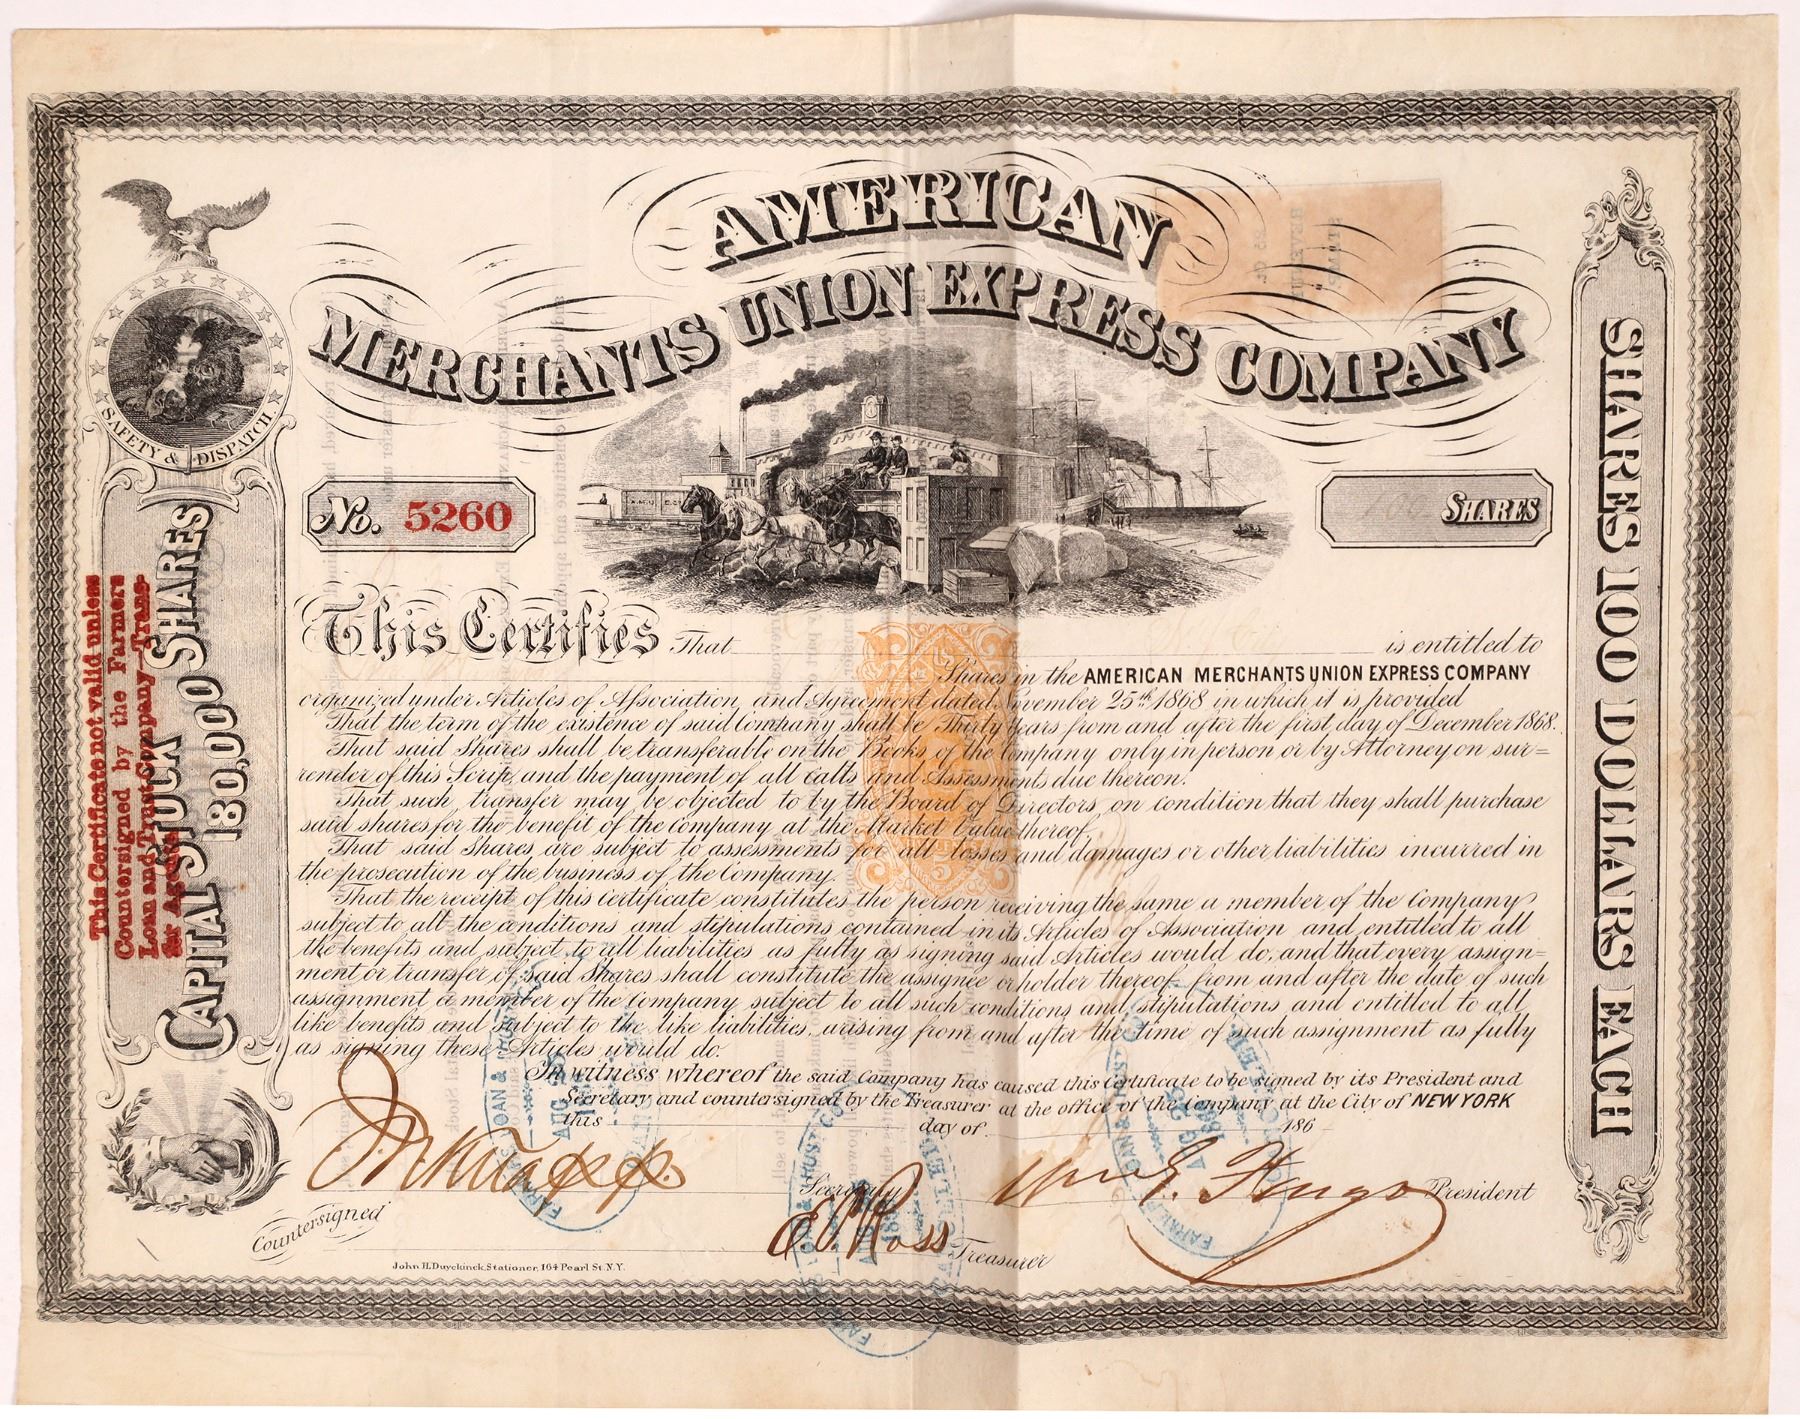 AMERICAN
MERCHANTS UNION EXPRESS COMPANY
SAFETY & DISPATCH.
No. 5260
SHARES
This Certifies That is entitled to
Shares in the AMERICAN MERCHANTS UNION EXPRESS COMPANY
organized under Articles of Association, and Agreement dated November 25th 1868 in which it is provided
That the term of the existence of said Company shall be Thirty Years from and after the first day of December 1868.
That said Shares shall be transferable on the Books of the Company only in person or by Attorney on sur=
render of this Scrip, and the payment of all calls and Assessments due thereon.
That such transfer may be objected to by the Board of Directors on condition that they shall purchase
said shares for the benefit of the Company at the Market Value thereof.
That said Shares are subject to assessments for all losses and damages or other liabilities incurred in
the prosecution of the business of the Company.
That the receipt of this Certificate constitutes the person receiving the same a member of the Company
subject to all the conditions and stipulations contained in its Articles of Association and entitled to all
the benefits and subject to all liabilities as fully as signing said Articles would do, and that every assign=
ment or transfer of said Shares shall constitute the assignee or holder thereof from and after the date of such
assignment a member of the Company subject to all such conditions and stipulations and entitled to all
like benefits and subject to the like liabilities, arising from and after the time of such assignment as fully
as signing these Articles would do.
In witness whereof the said Company has caused this Certificate to be signed by its President and
Secretary and countersigned by the Treasurer at the office of the Company at the City of NEW YORK
this day of 186
J. N. Knapp Secretary Wm G. Fargo President
Countersigned E. C. Ross Treasurer
John H. Duyckinck, Stationer, 164 Pearl St. N.Y.
CAPITAL STOCK
180,000 SHARES
This Certificate not valid unless
Countersigned by the Farmers
Loan and Trust Company Trans-
fer Agents
SHARES 100 DOLLARS EACH